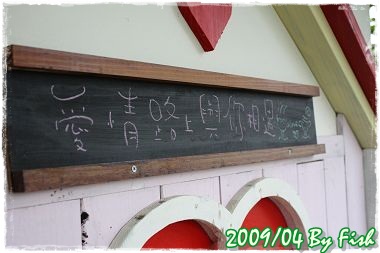 愛情路上與你相遇
2009/04 By Fish